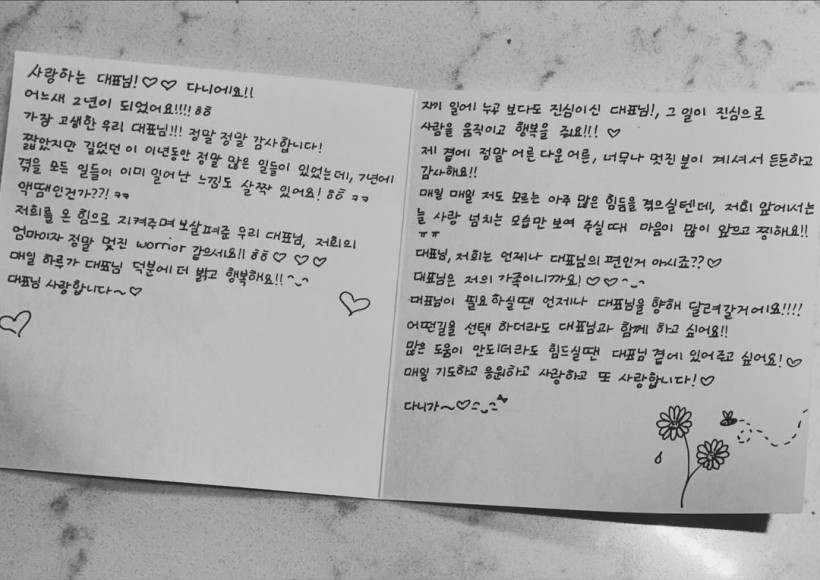 사랑하는 대표님!♡♡ 다니에요!!
어느새 2년이 되었어요!!!! ㅎㅎ
가장 고생한 우리 대표님!!! 정말 정말 감사합니다!
짧았지만 길었던 이 이년동안 정말 많은 일들이 있었는데, 7년에
겪을 모든 일들이 이미 일어난 느낌도 살짝 있어요! ㅎㅎ ㅋㅋ
액땜인건가??! ㅋㅋ
저희를 온 힘으로 지켜주며 보살펴준 우리 대표님, 저희의
엄마이자 정말 멋진 worrior 같으세요!! ㅎㅎ ♡ ♡ ♡
매일 하루가 대표님 덕분에 더 밝고 행복해요!! ^_^
대표님 사랑합니다~♡
자기 일에 누구 보다도 진심이신 대표님!, 그 일이 진심으로
사람을 움직이고 행복을 줘요!!! ♡
제 곁에 정말 어른 다운 어른, 너무나 멋진 분이 계셔서 든든하고
감사해요!!
매일 매일 저도 모르는 아주 많은 힘듦을 겪으실텐데, 저희 앞에서는
늘 사랑 넘치는 모습만 보여 주실때 마음이 많이 앞으고 찡해요!!
ㅠㅠ
대표님, 저희는 언제나 대표님의 편인거 아시죠?? ♡
대표님은 저의 가족이니까요! ♡♡ ^_^
대표님이 필요하실땐 언제나 대표님을 향해 달려갈거에요!!!!
어떤길을 선택 하더라도 대표님과 함께 하고 싶어요!!
많은 도움이 안되더라도 힘드실땐 대표님 곁에 있어주고 싶어요! ♡
매일 기도하고 응원하고 사랑하고 또 사랑합니다! ♡
다니가~♡^_^